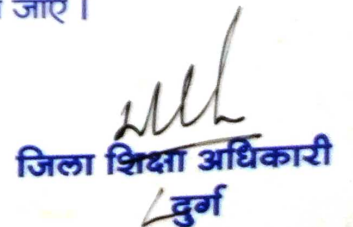 जाए ।
जिला शिक्षा अधिकारी
दुर्ग